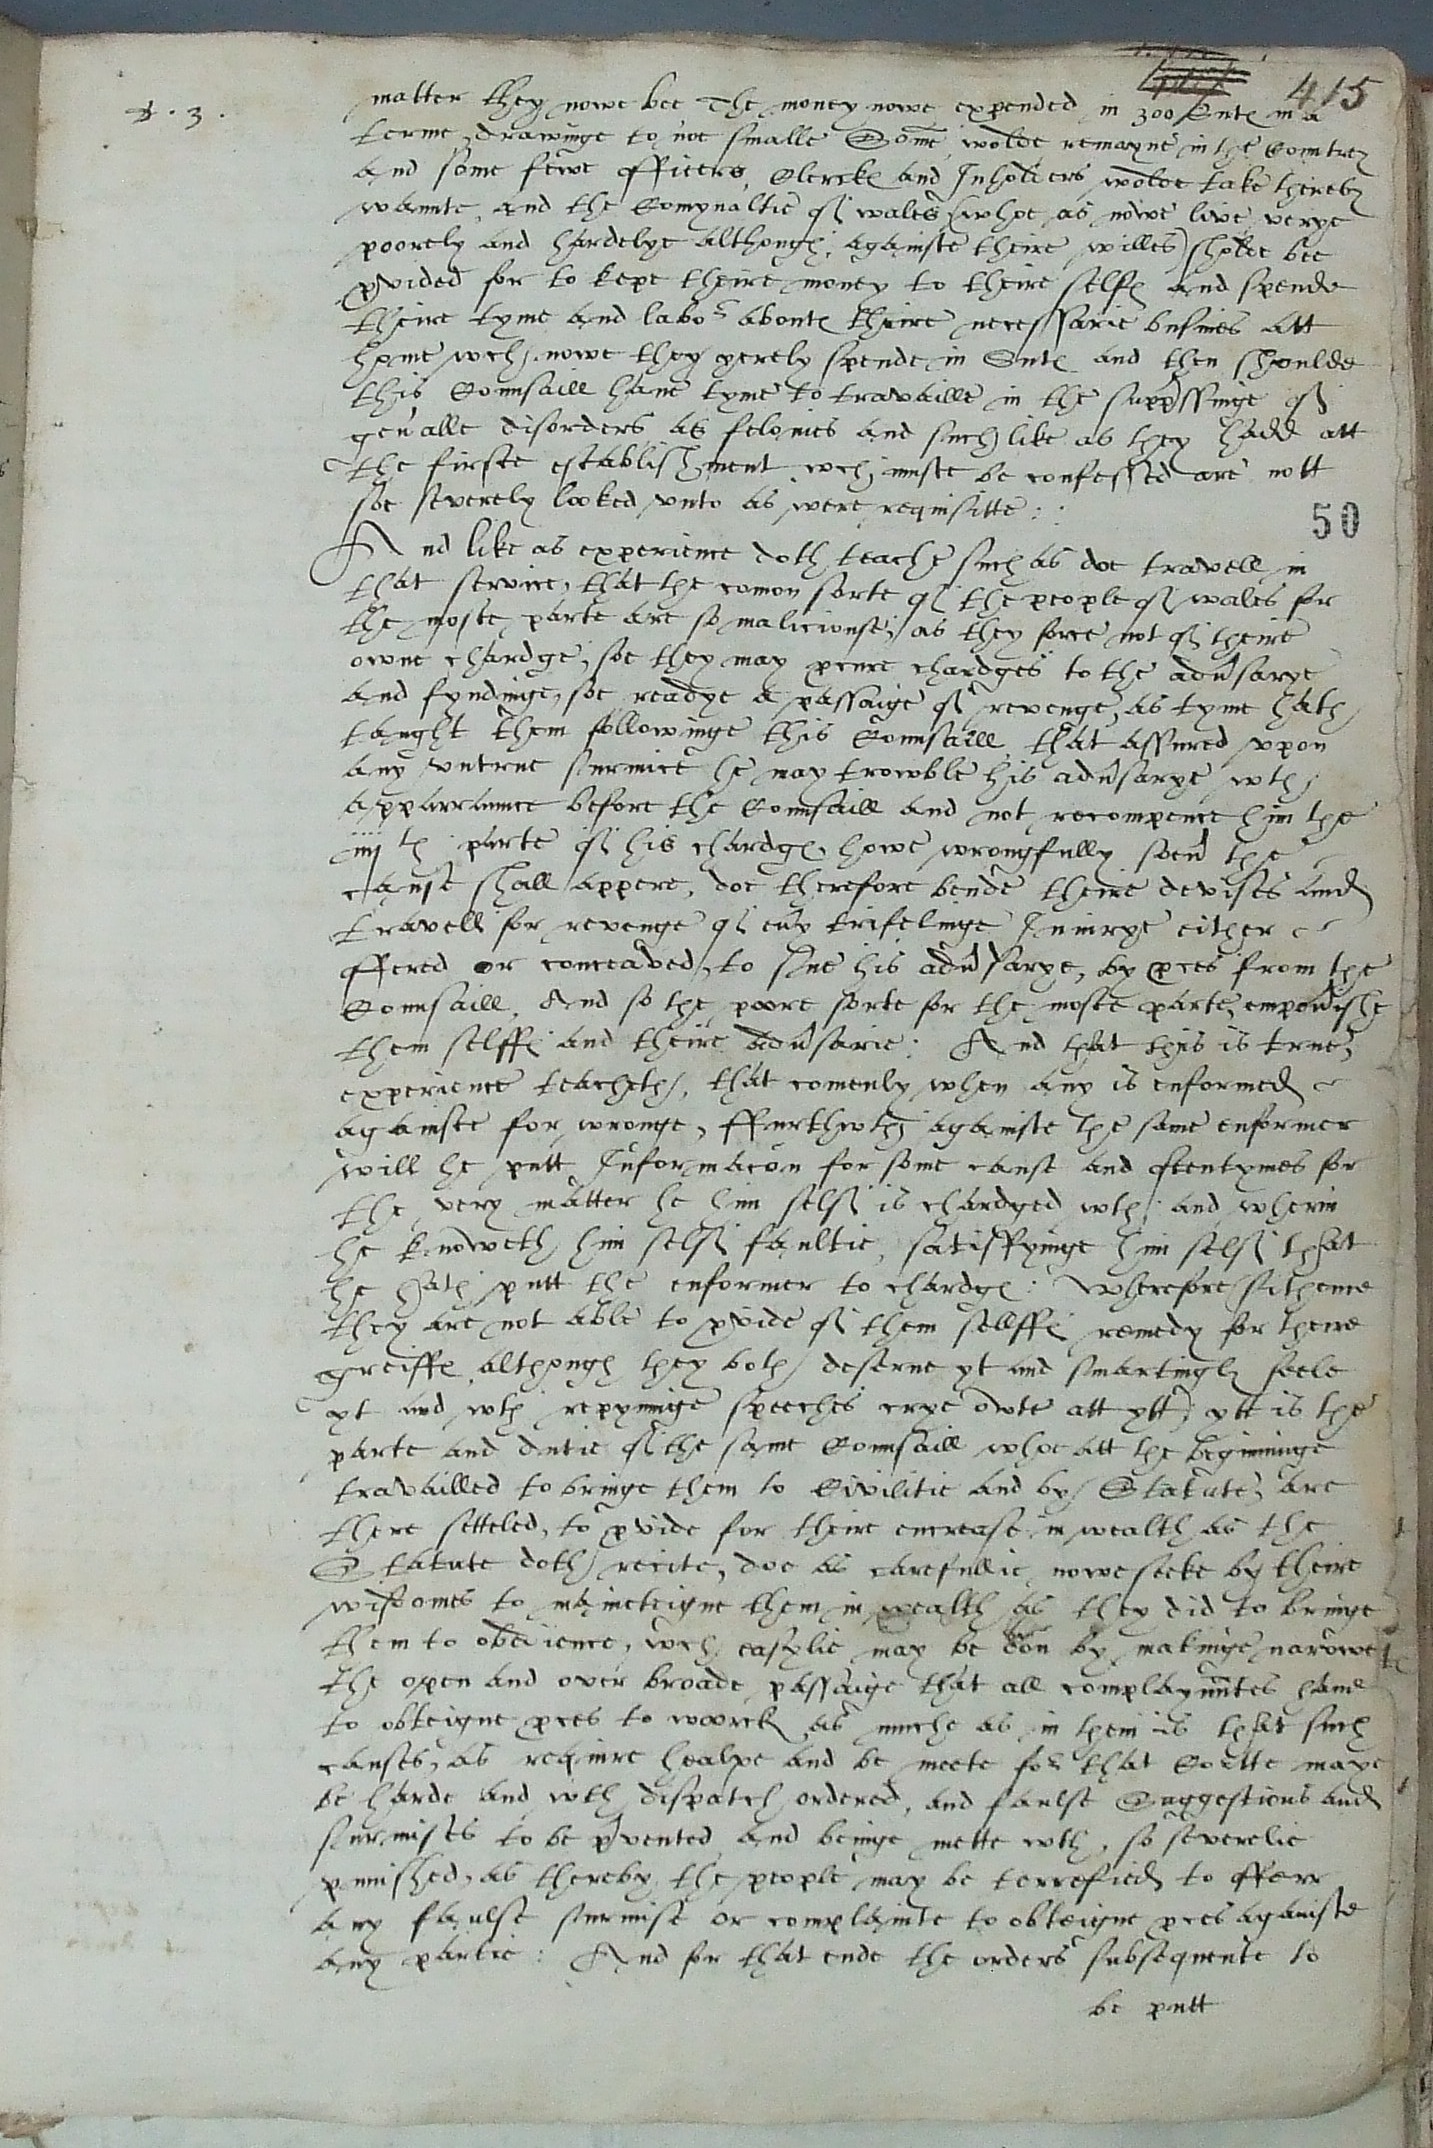 415
D . 3 .
matter they nowe bee The money nowe expended in 300 Sutes in a
terme, drawinge to noe smalle Some wolde remayne in the Countrey
and some fewe officers, Clerckes and Inholders wolde take thereby
wannte, and the Comynaltie of wales (whoe as nowe live verye
poorely and hardelye althoughe againste theire willes) sholde bee
pvided for to kepe theire money to theire selfes and spende
theire tyme and labor aboute theire necessarie busines att
home wch nowe they yerely spende in Sutes and then shoulde
this Counsaill have tyme to travaille in the suppssinge of
gen'alle disorders as felonies and suche like as they hadd att
the firste establishment wch muste be confessed are nott
soe severely looked vnto as were requisitte :
50
And like as experience doth teache such as doe travell in
that service, that the comon sorte of the people of wales for
the moste parte are so maliciouse, as they force not of theire
owne chardge, soe they may pcure chardges to the adu'sarye
and fyndinge, soe readye a passaige of revenge, as tyme hath
taught them followinge this Counsaill that assured vpon
any vntrue surmice he may trowble his adu'sarye wth
apparraunce before the Counsaill and not recompence him the
iiij th parte of his chardge, howe wrongfully soeu' the
cause shall appere, doe therefore bende theire devises and
travell for revenge of eu'y trifelinge Iniurye either
offered or conceaved, to sue his adu'sarye, by pces from the
Counsaill. And so the poore sorte for the moste parte, empou'ishe
them selffes and theire adu'sarie : And that this is true,
experience teacheth, that comenly when any is enformed
againste for wronge, ffurthwth againste the same enformer
will he putt Informacon for some cause and oftentymes for
the very matter he him self is chardged wth and wherin
he knoweth him self faultie, satisffyinge him self that
he hath putt the enformer to chardge : Wherefore sithence
they are not able to pvide of them sellffes remedy for there
greiffe, althoughe they both deserue yt and smartingly feele
yt and wth repyninge speeches crye owte att ytt, ytt is the
parte and dutie of the same Counsaill whoe att the beginninge
travailled to bringe them to Civilitie and by Statute, are
there setteled, to pvide for theire encrease in wealth as the
Statute doth recite, doe as carefullie nowe seeke by theire
wisdomes to mainteigne them in wealth as they did to bringe
them to obedience, wch easylie may be don by makinge narowe
the open and over broade passaige that all complaynntes have
to obteigne pces to woorck as muche as in them is that such
causes, as require healpe and be meete for that Courte maye
be harde and wth dispatch ordered, and faulse Suggestions and
surmises to be pvented and beinge mette wth, so severelie
punished, as thereby the people may be terrefied to offerr
any faulse surmise or complainte to obteigne pces againste
any partie : And for that ende the orders subsequente to
be putt